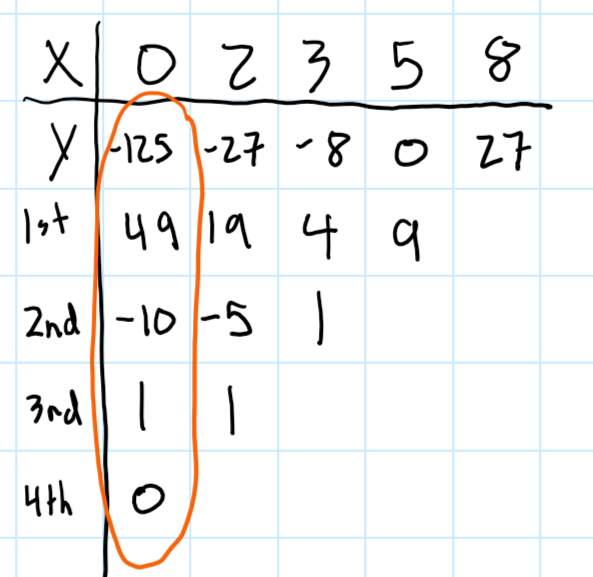 X 0 2 3 5 8
y -125 -27 -8 0 27
1st 49 19 4 9
2nd -10 -5 1
3rd 1 1
4th 0